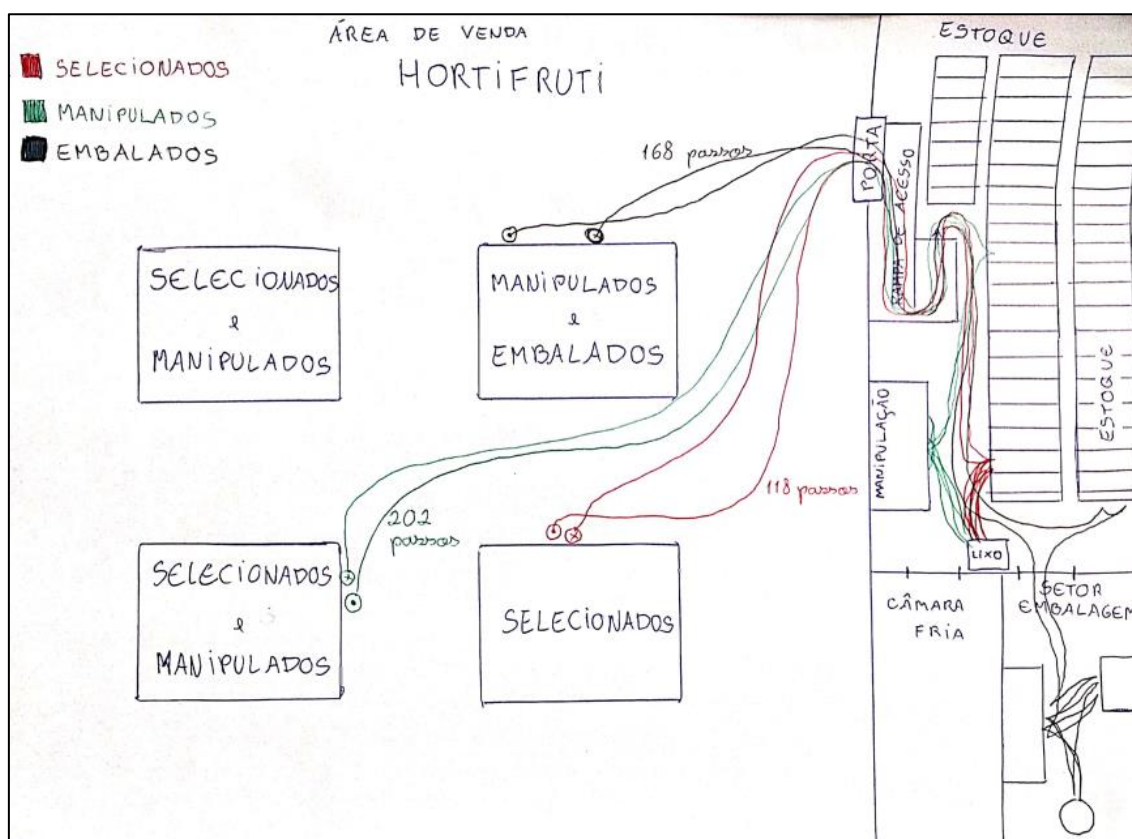 ÁREA DE VENDA
HORTIFRUTI
ESTOQUE
SELECIONADOS
MANIPULADOS
EMBALADOS
168 passos
PORTA
RAMPA DE ACESSO
SELECIONADOS
e
MANIPULADOS
MANIPULADOS
e
EMBALADOS
ESTOQUE
MANIPULAÇÃO
118 passos
202
passos
LIXO
SELECIONADOS
e
MANIPULADOS
SELECIONADOS
CÂMARA
FRIA
SETOR
EMBALAGEM